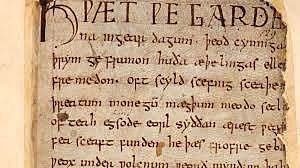 HǷÆT ǷE GARDE
na ingear dagum. þeod cyninga
þrym ge frunon huða æþelingas elle
fre medon. oft scyld scefing sceaþe
þreatum monegū mægþum meodo setl
of teah egsode eorl syððan ærest
sceaft funden he þæs frofre geba
ƿeox under ƿolcnum